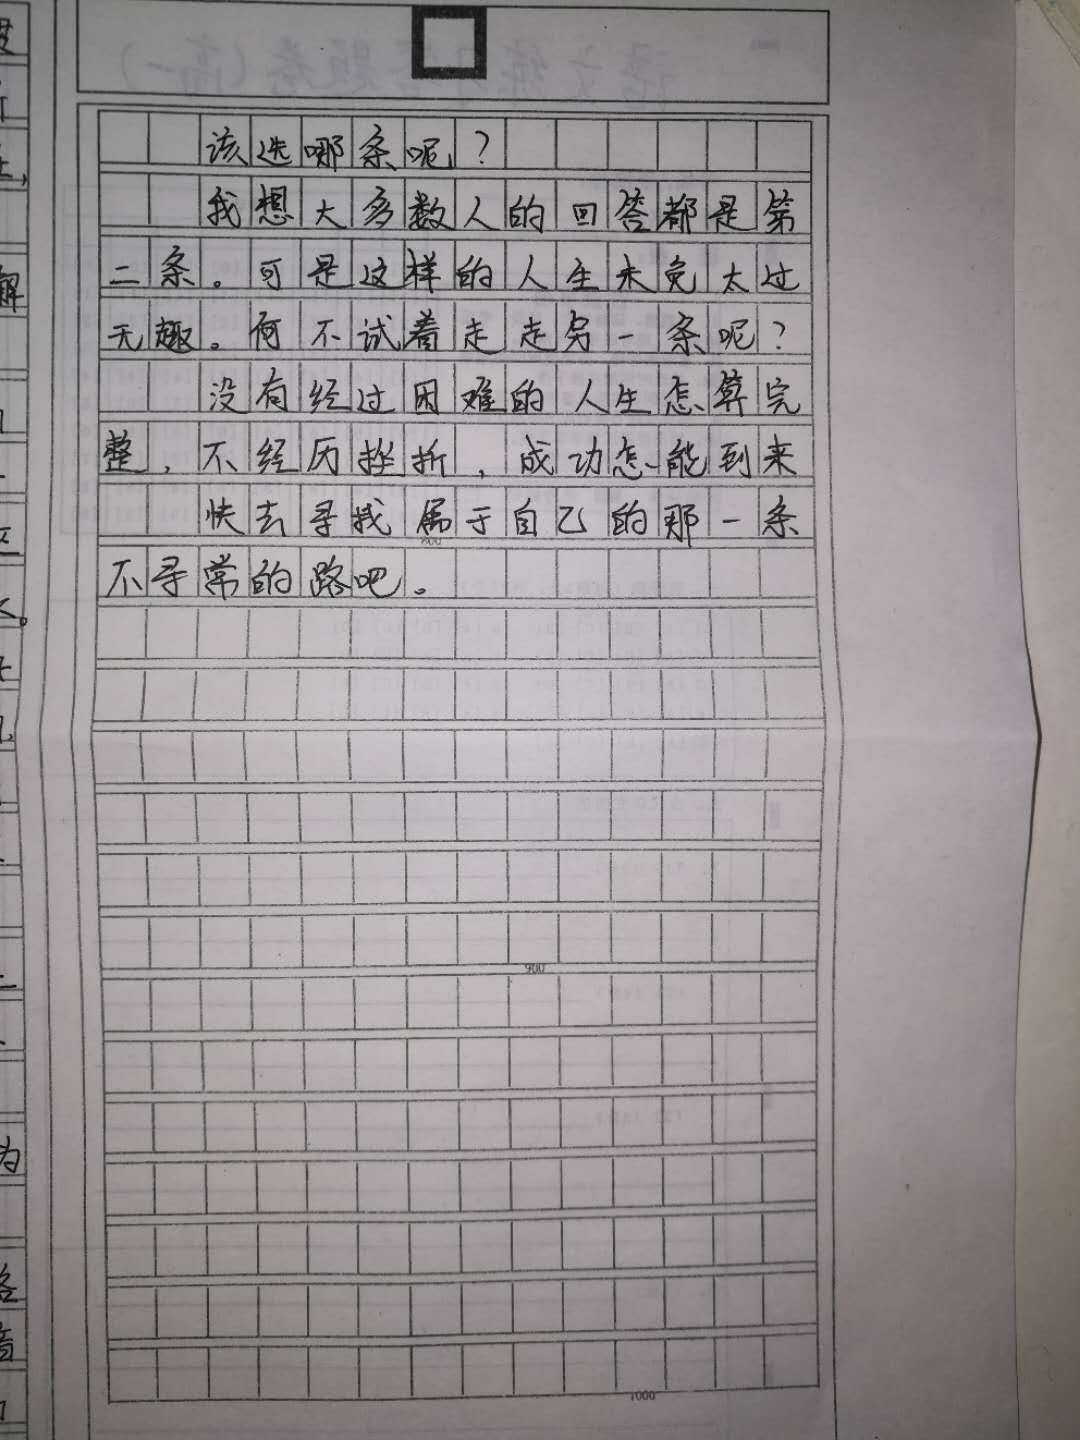 该选哪条呢？
我想大多数人的回答都是第
二条。可是这样的人生未免太过
无趣。何不试着走走另一条呢？
没有经过困难的人生怎算完
整，不经历挫折，成功怎能到来
快去寻找属于自己的那一条
800
不寻常的路吧。
900
1000